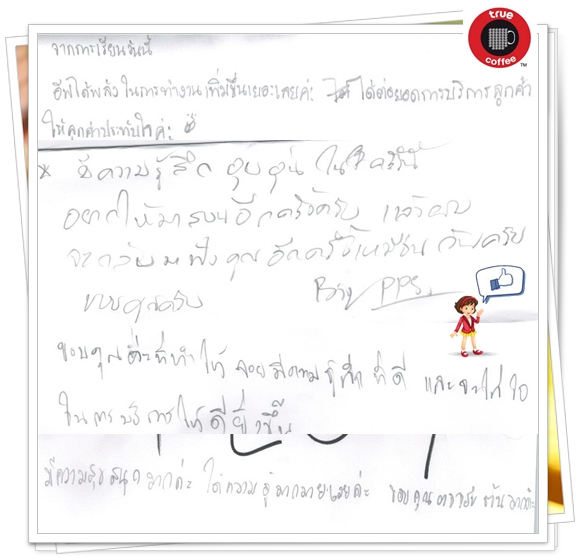 true
coffee
TM
จากการเรียนวันนี้
ได้พลังในการทำงานเพิ่มขึ้นเยอะเลยค่ะ ได้ต่อยอดการบริการลูกค้า
ให้ลูกค้าประทับใจค่ะ
* มีความรู้สึก อบอุ่น ในใจ ครับ
อยากให้มาสอนอีกครั้งครับ แล้วผม
จะกลับมาฟังคุณอีกครั้งเหมือนกันครับ
ขอบคุณครับ PPS.
ขอบคุณ ที่ทำให้ มีความรู้สึก ที่ดี และจะใส่ใจ
ในการบริการให้ดียิ่งขึ้น
มีความสุข สนุก มากค่ะ ได้ความรู้มากมายเลยค่ะ ขอบคุณอาจารย์